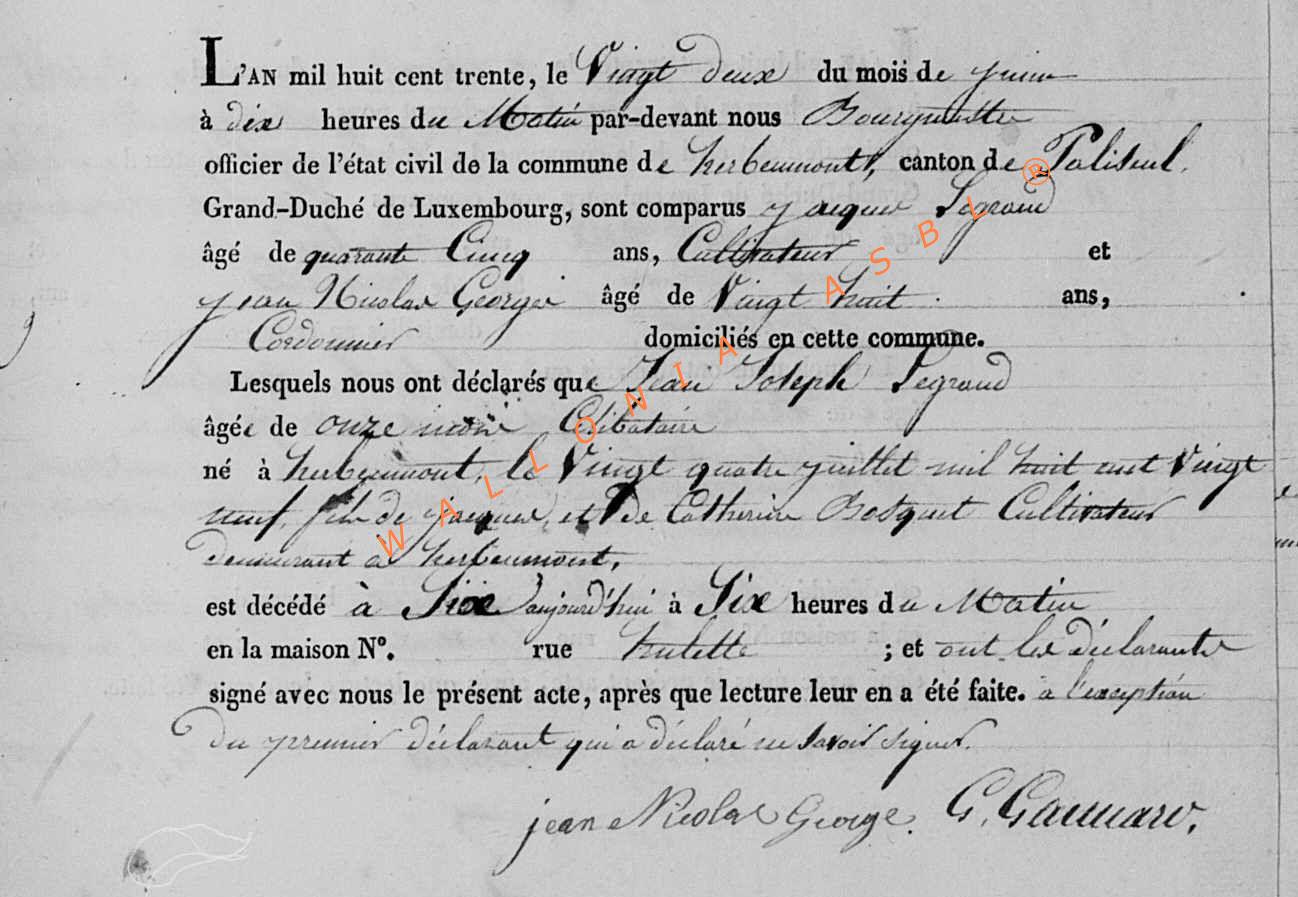 L'AN mil huit cent trente, le Vingt deux du mois de juin
à dix heures du Matin par-devant nous Bourgmestre
officier de l'état civil de la commune de herbeumont, canton de Paliseul,
Grand-Duché de Luxembourg, sont comparus jacques Legrand
âgé de quarante Cinq ans, Cultivateur et
jean Nicolas George âgé de Vingt huit ans,
Cordonnier domiciliés en cette commune.
Lesquels nous ont déclarés que Jean Joseph Legrand
âgé de onze mois Celibataire
né à herbeumont, le Vingt quatre juillet mil huit cent Vingt
neuf, fils de jacques, et de Catherine Bosquet Cultivateur
demeurant a herbeumont,
est décédé à aujourd'hui à Six heures du Matin
en la maison N°. rue hulette ; et ont les déclarants
signé avec nous le présent acte, après que lecture leur en a été faite. à l'exception
du premier déclarant qui a déclaré ne savoir signer.
jean Nicolas George. G. Gannard.
WALLONIA ASBL ®